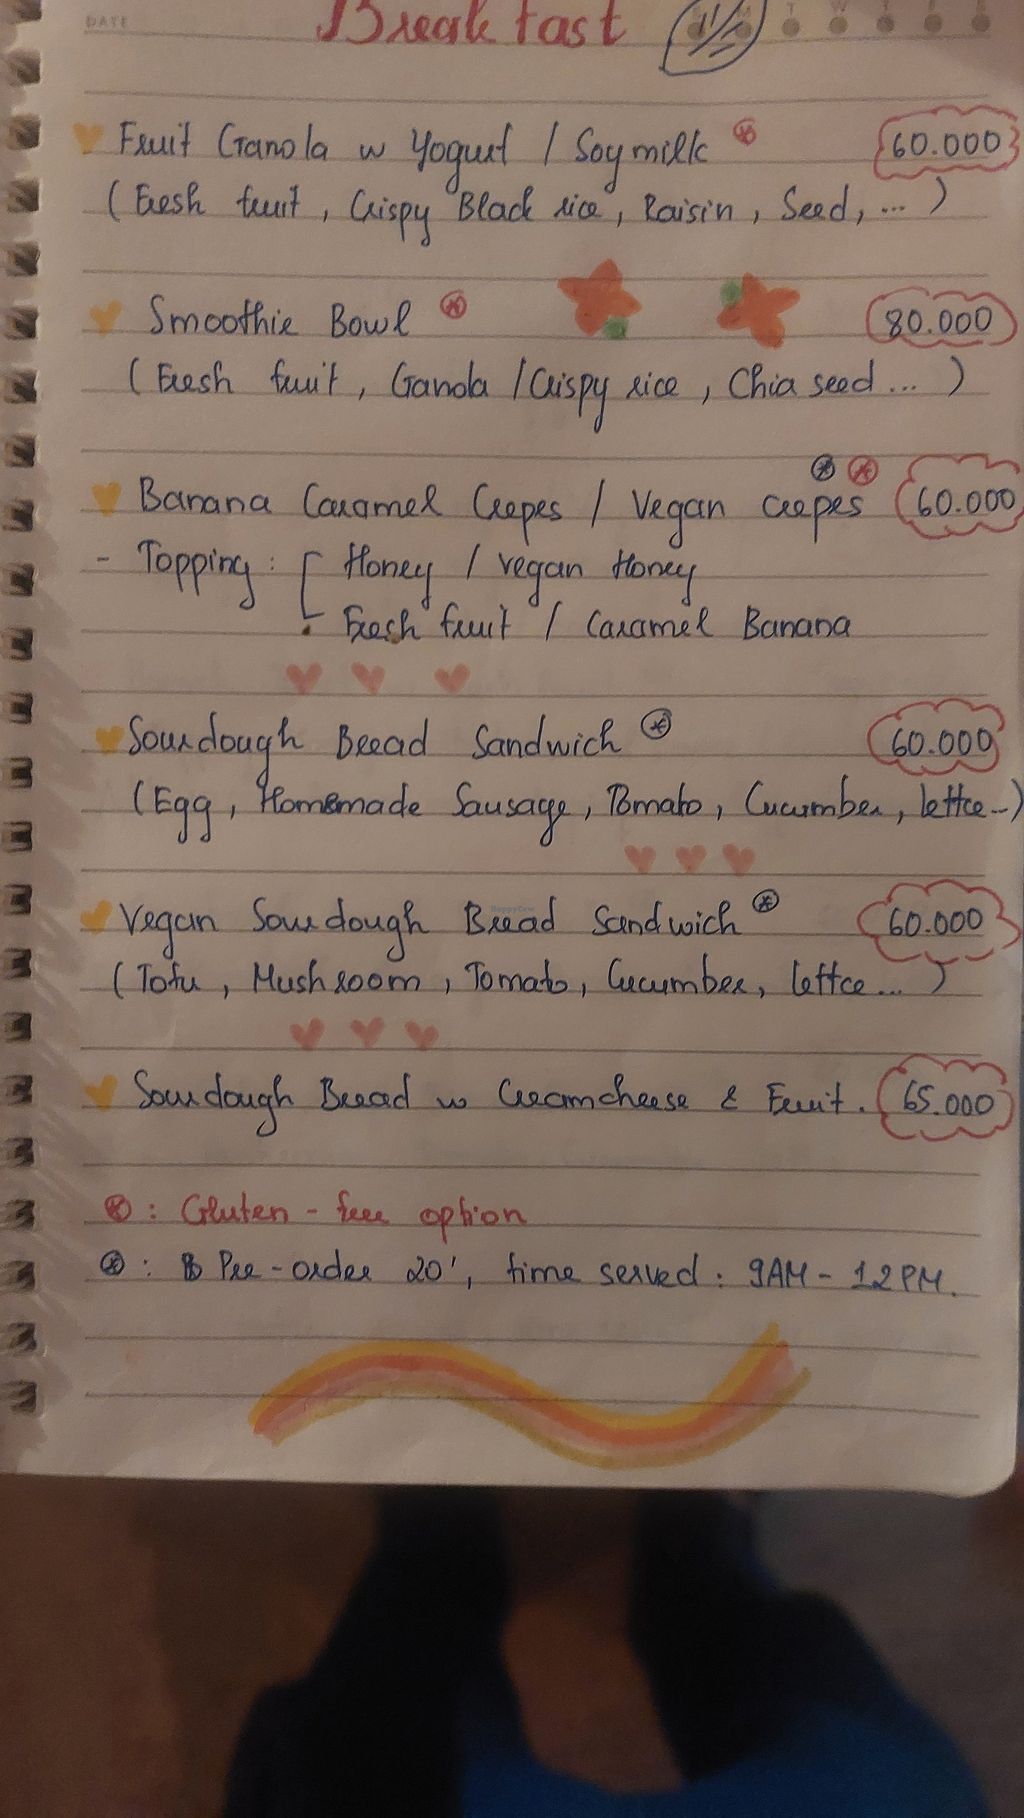 DATE
Breakfast
T W T F S
Fruit Granola w Yogurt / Soymilk ⊛ 60.000
(Fresh fruit, Crispy Black rice, Raisin, Seed, ... )
Smoothie Bowl ⊛ 80.000
(Fresh fruit, Ganola / Crispy rice, Chia seed ... )
Banana Caramel Crepes / Vegan Crepes ⊛ ⊛ 60.000
- Topping : Honey / vegan Honey
Fresh fruit / Caramel Banana
Sourdough Bread Sandwich ⊛ 60.000
(Egg, Homemade Sausage, Tomato, Cucumber, lettce ...)
Vegan Sourdough Bread Sandwich ⊛ 60.000
(Tofu, Mushroom, Tomato, Cucumber, lettce ... )
Sourdough Bread w Creamcheese & Fruit. 65.000
⊛ : Gluten - free option
⊛ : Pre-order 20', time served : 9AM - 12PM.